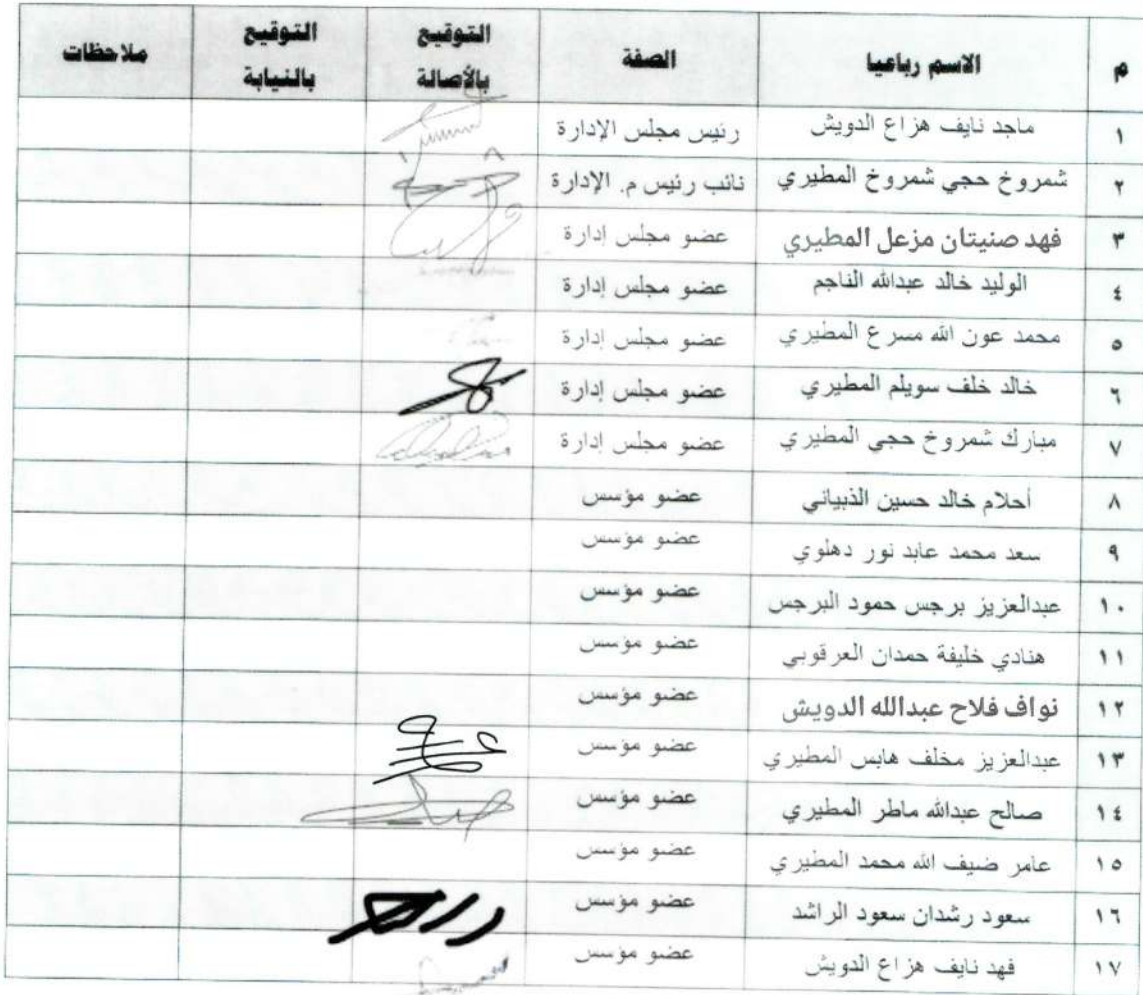 م الاسم رباعيا الصفة التوقيع بالأصالة التوقيع بالنيابة ملاحظات
١ ماجد نايف هزاع الدويش رئيس مجلس الإدارة
٢ شمروخ حجي شمروخ المطيري نائب رئيس م. الإدارة
٣ فهد صنيتان مزعل المطيري عضو مجلس إدارة
٤ الوليد خالد عبدالله الناجم عضو مجلس إدارة
٥ محمد عون الله مسرع المطيري عضو مجلس إدارة
٦ خالد خلف سويلم المطيري عضو مجلس إدارة
٧ مبارك شمروخ حجي المطيري عضو مجلس إدارة
٨ أحلام خالد حسين الذبياني عضو مؤسس
٩ سعد محمد عابد نور دهلوي عضو مؤسس
١٠ عبدالعزيز برجس حمود البرجس عضو مؤسس
١١ هنادي خليفة حمدان العرقوبي عضو مؤسس
١٢ نواف فلاح عبدالله الدويش عضو مؤسس
١٣ عبدالعزيز مخلف هابس المطيري عضو مؤسس
١٤ صالح عبدالله ماطر المطيري عضو مؤسس
١٥ عامر ضيف الله محمد المطيري عضو مؤسس
١٦ سعود رشدان سعود الراشد عضو مؤسس
١٧ فهد نايف هزاع الدويش عضو مؤسس